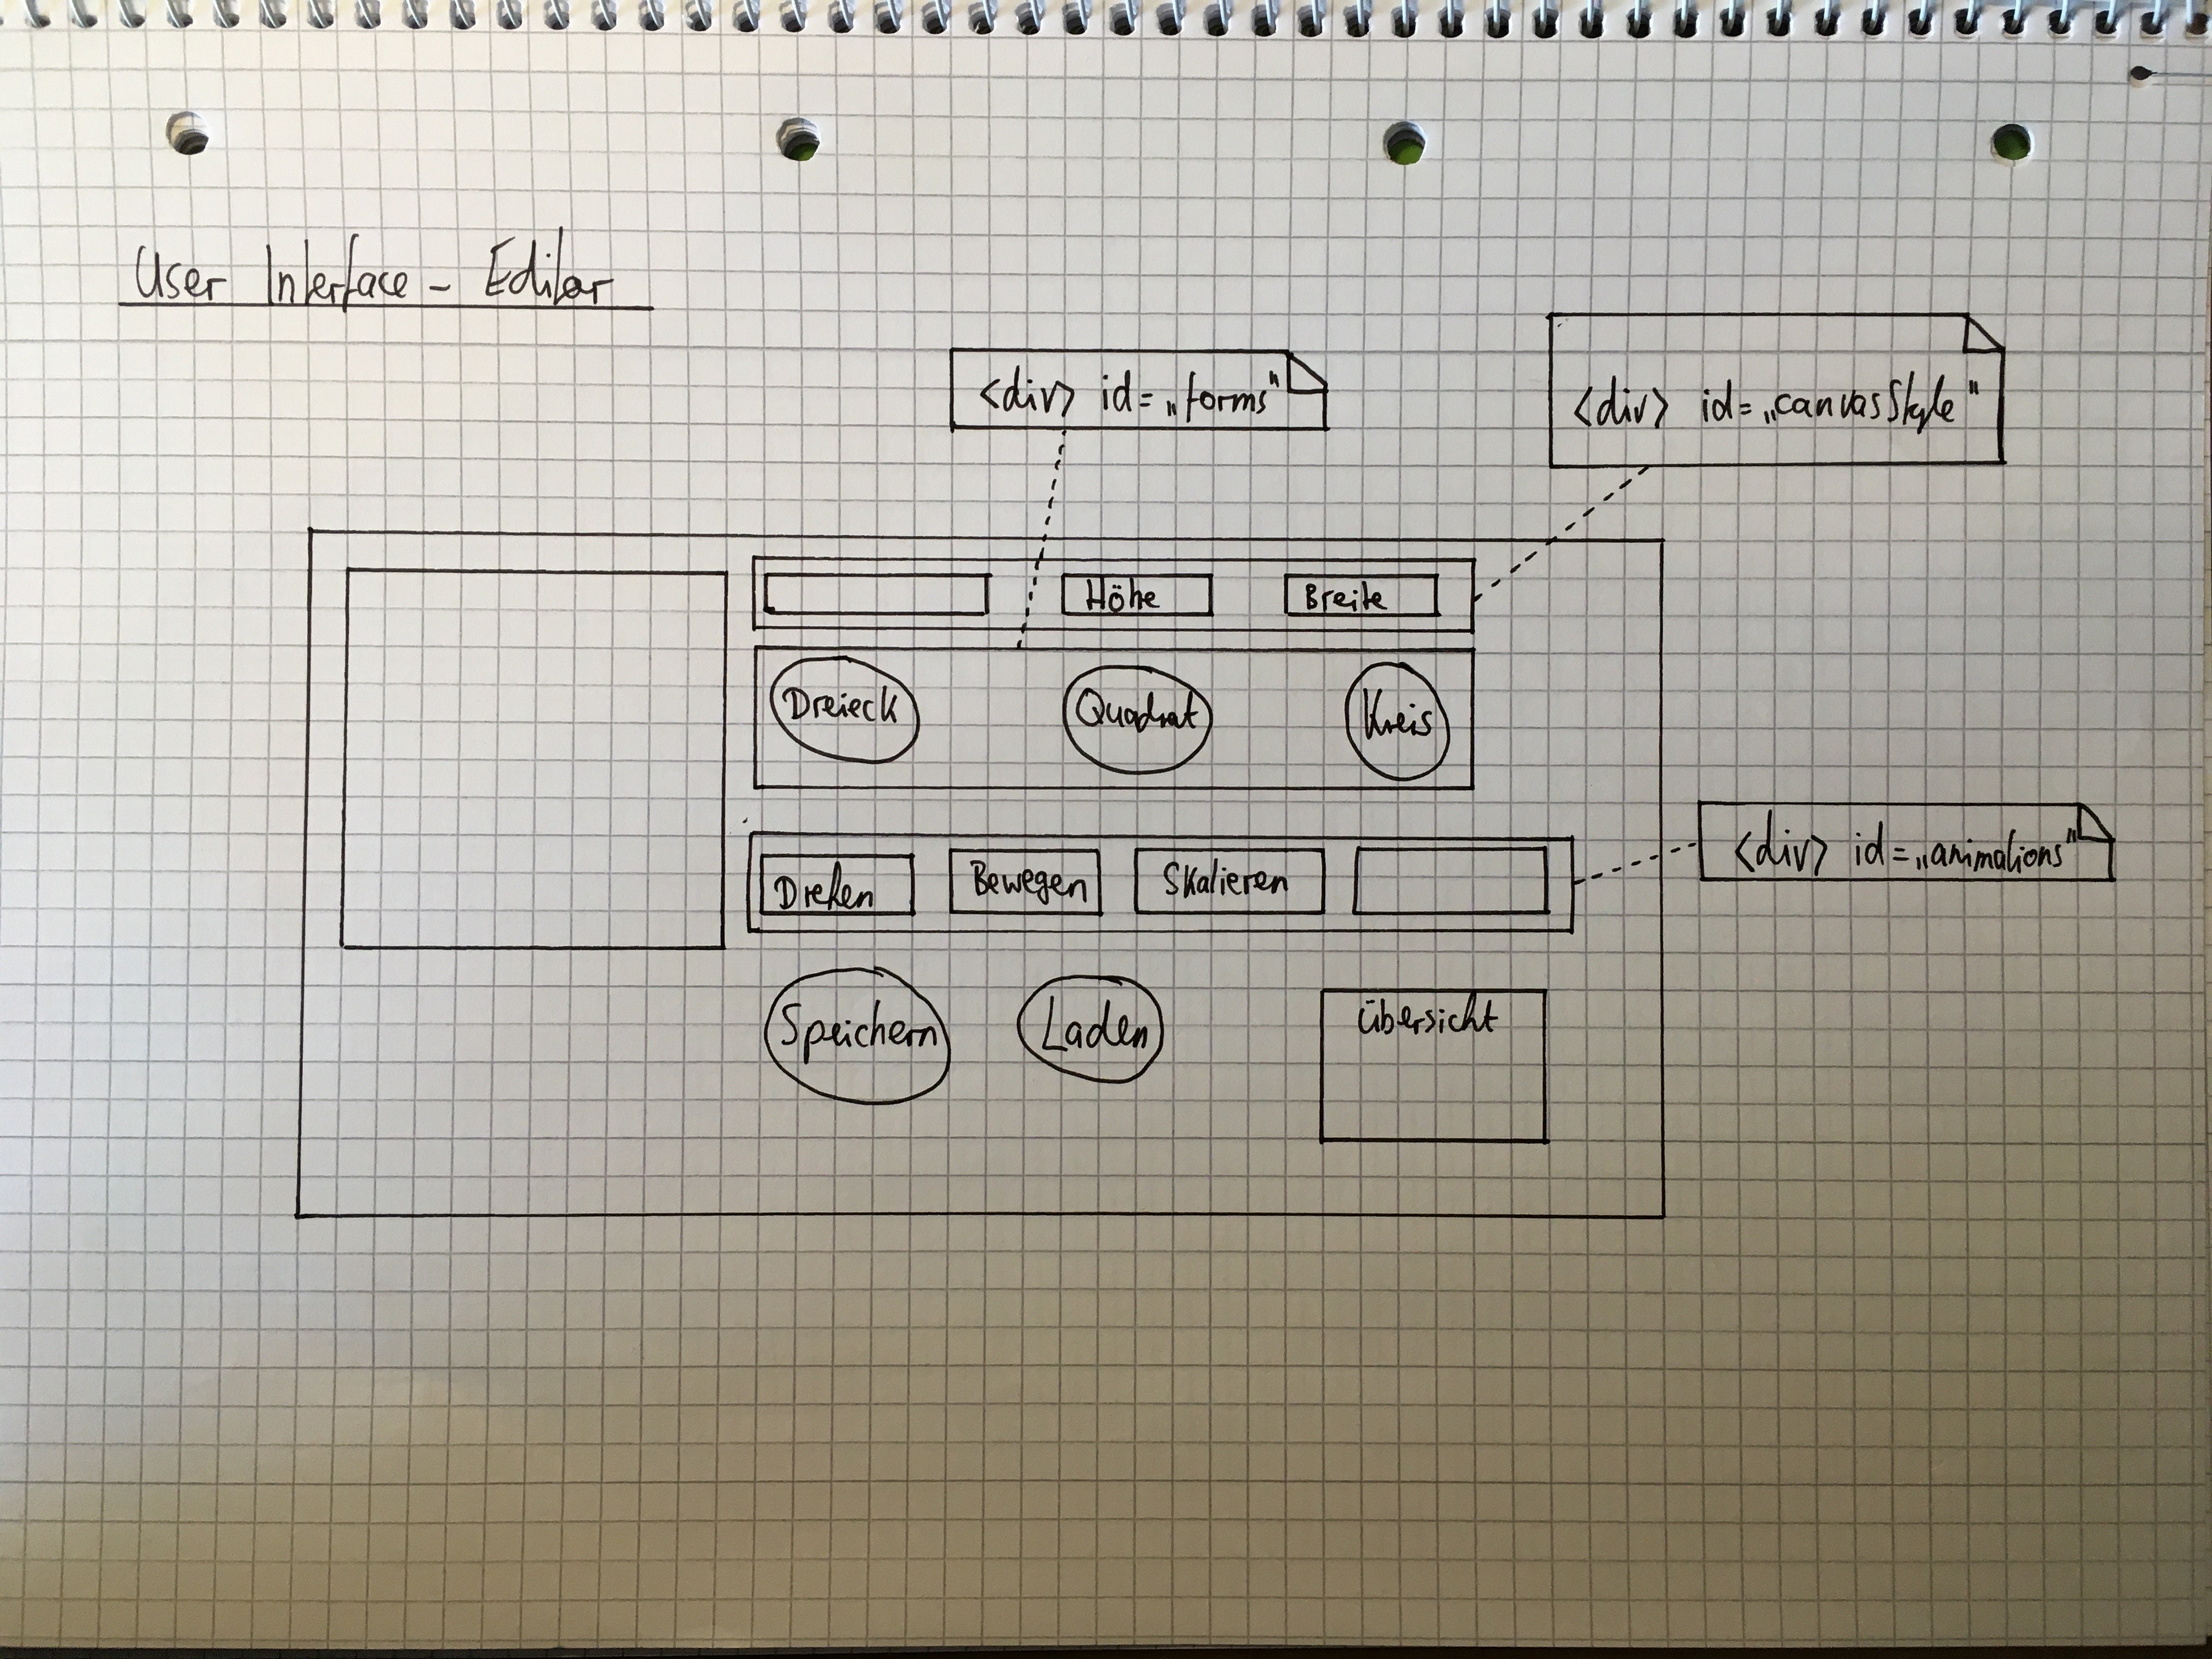 User Interface - Editor
<div> id=„forms"
<div> id=„canvasStyle"
Höhe
Breite
Dreieck
Quadrat
Kreis
Drehen
Bewegen
Skalieren
<div> id=„animations"
Speichern
Laden
Übersicht